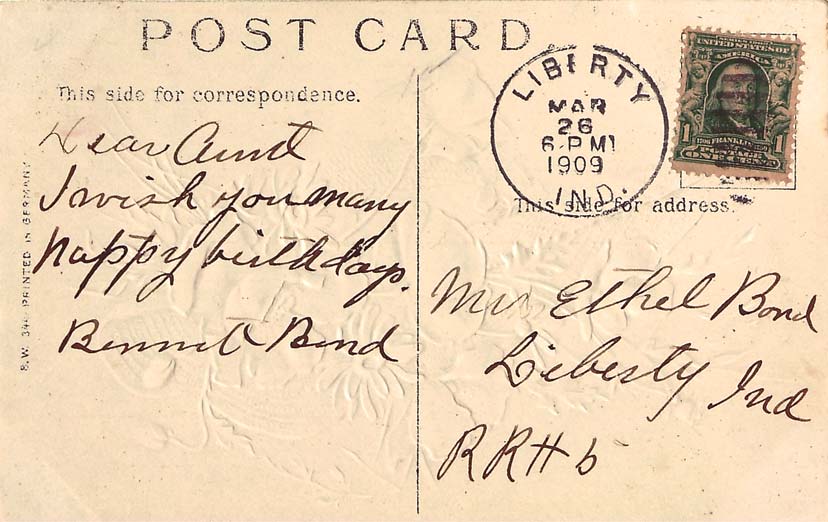 POST CARD.
This side for correspondence.
Dear Aunt
I wish you many
happy birthdays.
Bennett Bond
S.W. PRINTED IN GERMANY
LIBERTY
MAR
26
6 PM
1909
IND.
UNITED STATES OF
AMERICA
1706 FRANKLIN 1790
POSTAGE
1 ONE CENT 1
This side for address.
Ethel Bond
Liberty Ind
RR